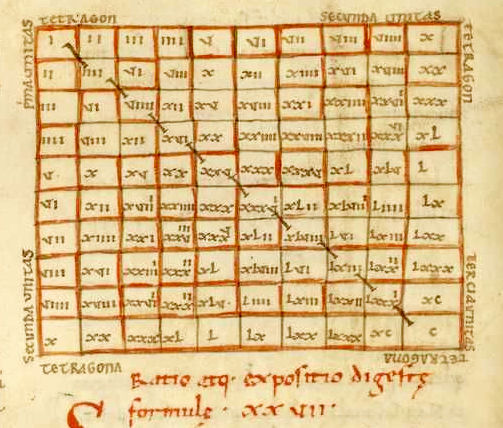 TETRAGON SECUNDA UNITAS
PMA UNITAS
TETRAGON
I II III IIII V VI VII VIII VIIII X
II IIII VI VIII X XII XIIII XVI XVIII XX
III VI VIIII XII XV XVIII XXI XXIIII XXVII XXX
IIII VIII XII XVI XX XXIIII XXVIII XXXII XXXVI XL
V X XV XX XXV XXX XXXV XL XLV L
VI XII XVIII XXIIII XXX XXXVI XLII XLVIII LIIII LX
VII XIIII XXI XXVIII XXXV XLII XLVIIII LVI LXIII LXX
VIII XVI XXIIII XXXII XL XLVIII LVI LXIIII LXXII LXXX
VIIII XVIII XXVII XXXVI XLV LIIII LXIII LXXII LXXXI XC
X XX XXX XL L LX LXX LXXX XC C
SECUNDA UNITAS
TERCIA UNITAS
TETRAGONA TETRAGONA
Ratio atq. expositio digestę
formulę . XXVII.
S